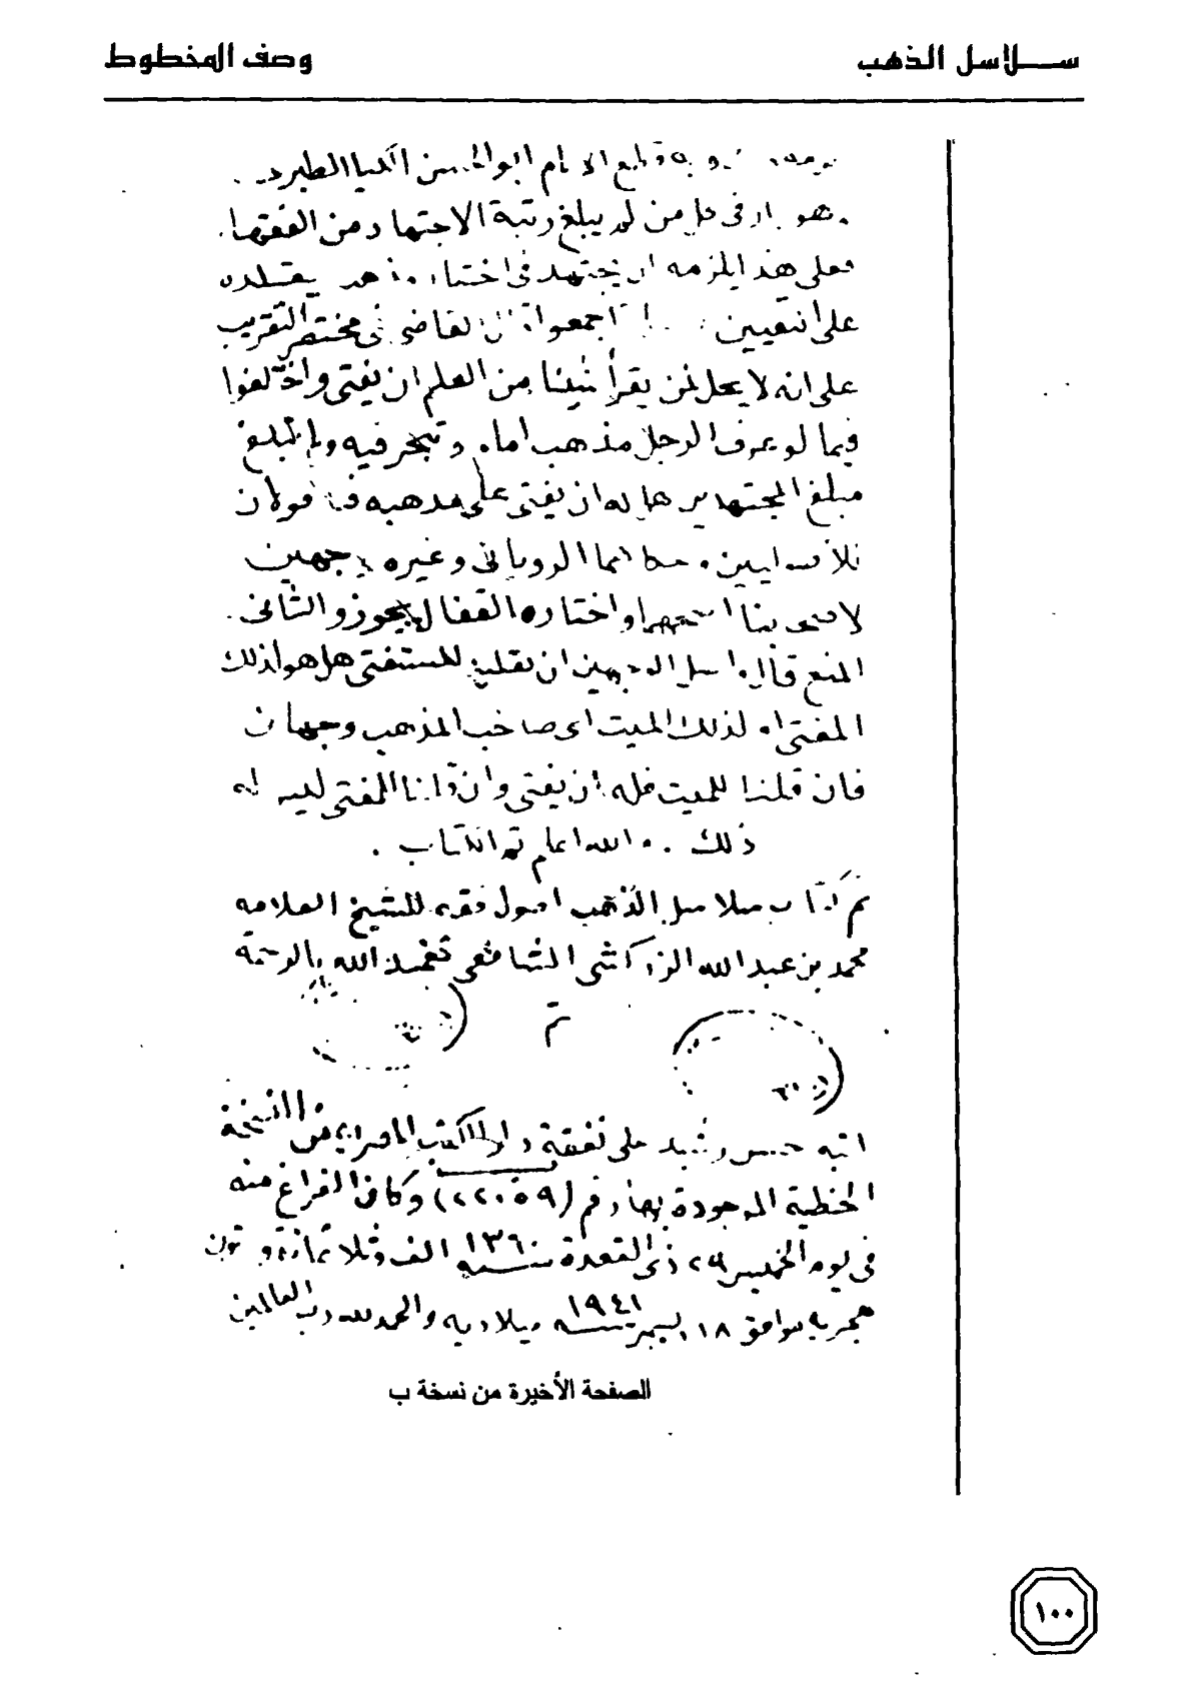 سلاسل الذهب
وصف المخطوط
قطع الامام ابو الحسن الكيا الطبرى
من لم يبلغ رتبة الاجتهاد من الفقها
فعلى هذا يلزمه ان يجتهد فى يقلده
على التعيين اجمعوا القاضى فى مختصر التقريب
على انه لا يحل لمن يقرأ شيئا من العلم ان يفتى واختلفوا
فيما لو عرف الرجل مذهب امام وتبحر فيه ولم يبلغ
مبلغ المجتهدين هل له ان يفتى على مذهبه قولان
الرويانى وغيره وجهين
واختاره القفال يجوز والثانى
المنع قال ان تقليد المستفتى هل هو لذلك
المفتى او لذلك الميت اى صاحب المذهب وجهان
فان قلنا للميت فله ان يفتى وان قلنا المفتى ليس له
ذلك والله اعلم تم الكتاب
تم كتاب سلاسل الذهب اصول فقه للشيخ العلامه
محمد بن عبد الله الزركشى الشافعى تغمده الله بالرحمة
تم
على نفقة دار الكتب المصرية من النسخة
الخطية الموجودة بها رقم (٢٢٠٥٩) وكان الفراغ منه
فى يوم الخميس ٢٩ ذى القعدة سنة ١٣٦٠ الف وثلاثمائة وستون
هجرية يوافق ١٨ ديسمبر سنة ١٩٤١ ميلادية والحمد لله رب العالمين
الصفحة الأخيرة من نسخة ب
١٠٠